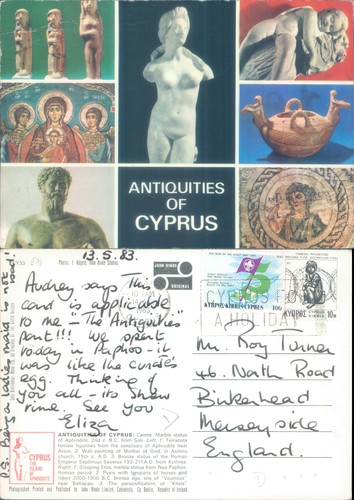 ANTIQUITIES
OF
CYPRUS
13.5.83.
Photo: E. Nägele, John Hinde Studios.
JOHN HINDE
ORIGINAL
Audrey says This
card is applicable
to me - "The Antiquities"
part!!! We spent
today in Paphos - it
was like the curate's
egg. Thinking of
you all - its Shaw
Time. See You
Eliza
KYPROS KIBRIS CYPRUS
100
ΚΥΠΡΟΣ
10
CYPRUS FOR
A HOLIDAY
Mr. Roy Turner
46. North Road
Birkenhead
Merseyside
England.
CYPRUS
THE
ISLAND
OF
APHRODITE
ANTIQUITIES OF CYPRUS: Centre: Marble statue
of Aphrodite, 2nd c. B.C. from Soli. Left: 1. Terracota
female figurines from the sanctuary of Aphrodite near
Arsos. 2. Wall-painting of Mother of God, in Asinou
church, 15th c. A.D. 3. Bronze statue of the Roman
Emperor Septimius Severus 193-211A.D. from Kythrea.
Right: 1. Sleeping Eros, marble statue from Nea Paphos.
Roman period. 2. Pyxis with figures of horses and
ridges 2000-1900 B.C. bronze age, site of "Vounous"
near Bellapais. 3. The personification of "Ktisis"
Photographed, Printed and Published by John Hinde Limited, Cabinteely, Co. Dublin, Republic of Ireland